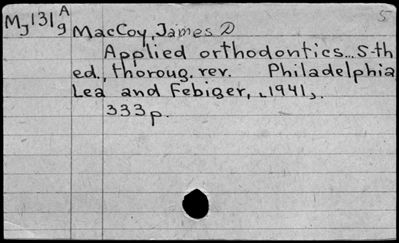 5
Mj131 A/g
MacCoy, James D
Applied orthodontics.. 5-th
ed., thoroug. rev. Philadelphia
Lea and Febiger, [1941].
333p.